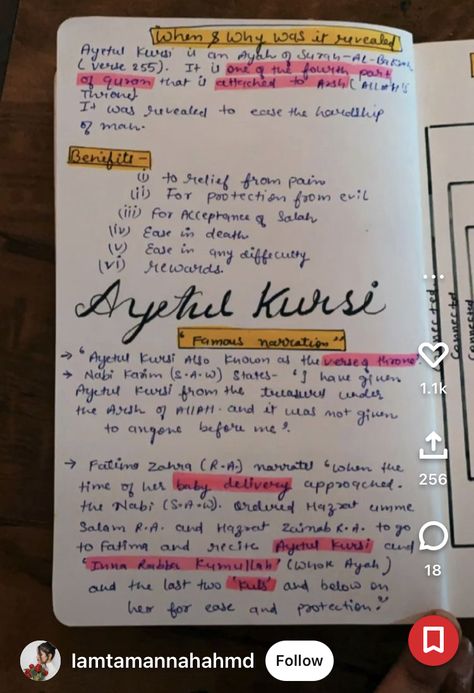 When & Why was it revealed
Ayetul Kursi is an Ayah of Surah-Al-Bakrah
(verse 255). It is one of the fourth part
of quron that is attached to Arsh (Allah's
Throne)
It was revealed to ease the hardship
of man.
Benefits -
(i) to relief from pain
(ii) For protection from evil
(iii) For Acceptance of Salah
(iv) Ease in death
(v) Ease in any difficulty
(vi) rewards.
Ayetul Kursi
"Famous narration"
→ "Ayetul Kursi Also known as the verse of throne".
→ Nabi Karim (S.A.W) States- "I have given
Ayetul Kursi from the treasures under
the Arsh of Allah. and it was not given
to anyone before me".
→ Fatima Zahra (R.A.) narrates "when the
time of her baby delivery approached.
the Nabi (S.A.W). ordered Hazrat umme
Salam R.A. and Hazrat Zainab R.A. to go
to Fatima and recite Ayetul Kursi and
'Inna Rabba Kumullah' (whole Ayah)
and the last two 'Kuls' and below on
her for ease and protection."
Connected
Connected
1.1k
256
18
Iamtamannahahmd
Follow